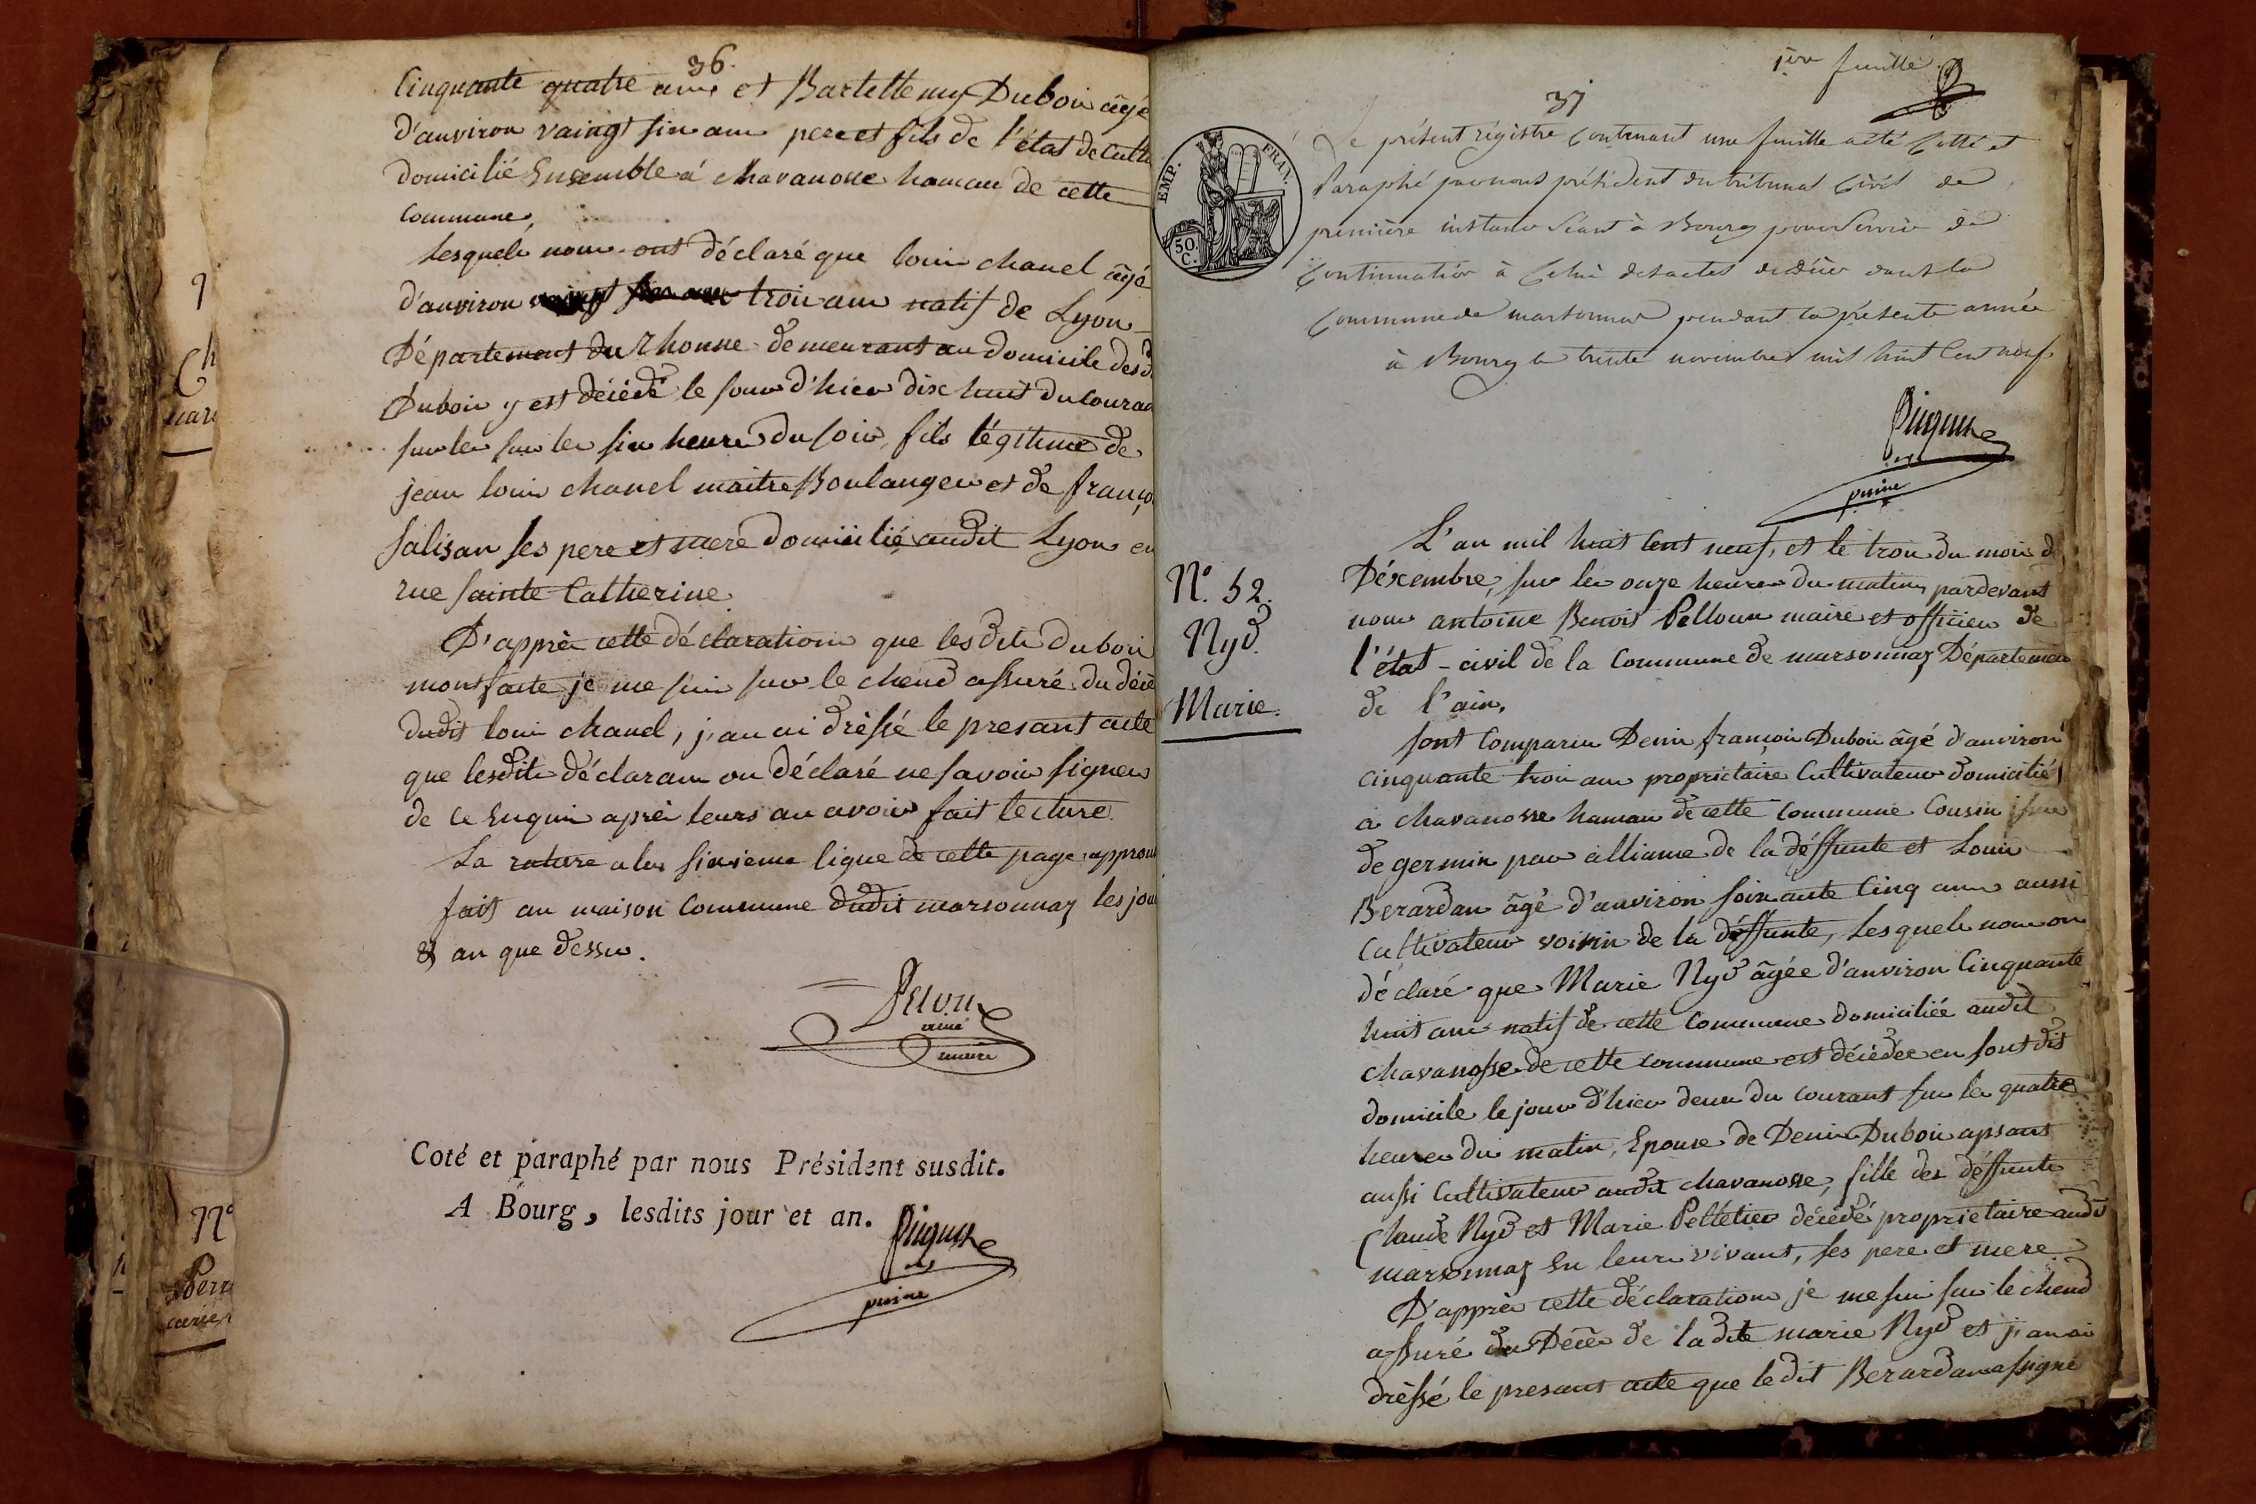 36.
Cinquante quatre ans et Barteltemy Duboin âgé
d'anviron vaingt sin ans pere et fils de l'état de Cult
domicilié Ensemble á chavanosse hamau de cette
commune,
Lesquels nous ont déclaré que louis chanel âgé
d'anviron trois ans natif de Lyon
Département du Rhonne demeurant au domicile desd
Duboin y est décédé le jour d'hier dix huit du couran
sur les sur les six heures du soir, fils légitime de
jean louis chanel maitre Boulanger et de franço
salisan ses pere et mere domicilié audit Lyon en
rue Sainte Catherine.
D'apprès cette déclaration que lesdits duboin
mont faite je me suis sur le chend assuré du décè
dudit louis chanel, j'an ai drèssé le presant acte
que lesdits déclarans on déclaré ne savoir signer
de ce Enquis après leurs an avoir fait lecture.
La rature a la sixieme ligne de cette page approu
fait an maison commune dudit marsonnaz les jou
& an que dessu.
ainé
maire
Coté et paraphé par nous Président susdit.
A Bourg, lesdits jour et an.
Nº
1ère feuille
37
EMP. FRAN.
50. C.
Le présent régistre contenant une feuille acté cotté et
Paraphé par nous président du tribunal civil de
première instance séant à Bourg pour servir de
continuation à celui des actes de décès dans la
commune de marsonnas pendant la présente année
à Bourg le trente novembre mil huit cent neuf
Nº. 52.
Nyd
Marie.
L'an mil huit cent neuf, et le trois du mois d
Déxembre, sur les onze heures du matin, pardevant
nous antoine Benoit Pelloux maire et officier de
l'état-civil de la commune de marsonnaz Départemen
de l'ain,
sont comparu Denis françois Duboin âgé d'anviron
cinquante trois ans propriétaire Cultivateur domicilié
a chavanosse hamau de cette commune Cousin issu
de germin par alliance de la déffunte et Louis
Berardan âgé d'anviron soixante Cinq ans aussi
Cultivateur voisin de la déffunte, Lesquels nous on
déclaré que Marie Nyd âgée d'anviron Cinquante
huit ans natif de cette commune domiciliée audit
chavanosse de cette commune est décédée en sont dit
domicile le jour d'hier deux du courant sur les quatre
heures du matin, Epouse de Denis Duboin apsant
aussi Cultivateur audit chavanosse, fille des déffunts
Claude Nyd et Marie Pelletier décédé propriétaire audi
marsonnaz En leurs vivant, ses pere et mere.
D'apprès cette déclaration je me suis sur le chend
assuré du Décès de ladite marie Nyd et j'an ai
drèssé le presant acte que ledit Berardan a signé